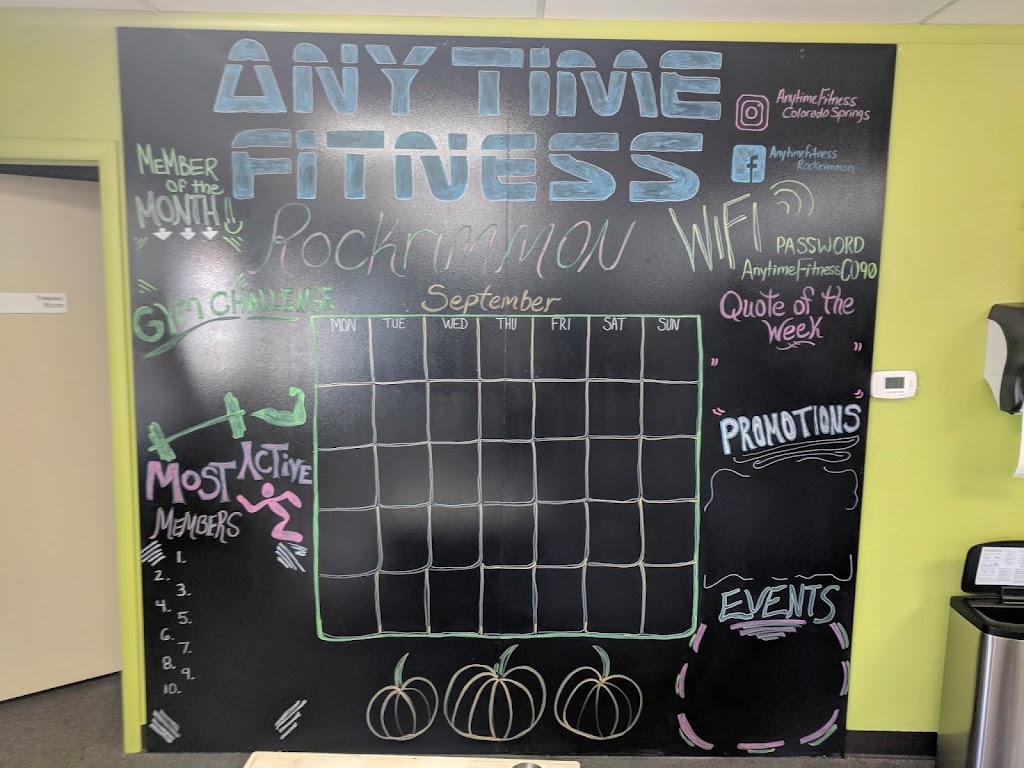 ANYTIME
FITNESS
Rockrimmon
AnytimeFitness
Colorado Springs
Anytimefitness
Rockrimmon
MeMBER
of the
MONTH!!
WiFi
PASSWORD
AnytimeFitnessCO90
GyM CHALLENGE
September
MON TUE WED THU FRI SAT SUN
Quote of the
Week
" "
PROMOTIONS
MOST ACTiVE
MEMBERS
1.
2.
3.
4.
5.
6.
7.
8.
9.
10.
EVENTS